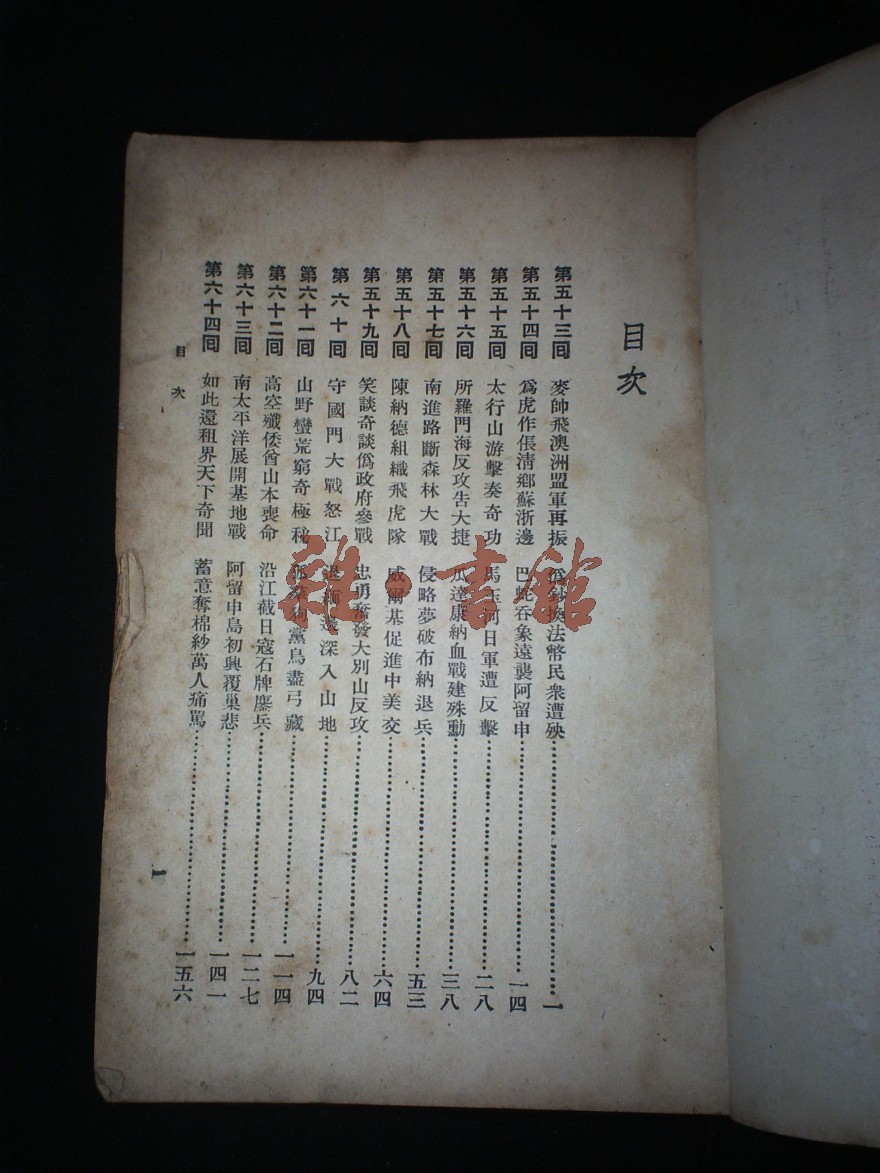 目次
第五十三回 麥帥飛澳洲盟軍再振 僞鈔換法幣民衆遭殃 一
第五十四回 爲虎作倀淸鄉蘇浙邊 巴蛇吞象遠襲阿留申 一四
第五十五回 太行山游擊奏奇功 馬玉河日軍遭反擊 二八
第五十六回 所羅門海反攻吿大捷 瓜達康納血戰建殊勳 三八
第五十七回 南進路斷森林大戰 侵略夢破布納退兵 五三
第五十八回 陳納德組織飛虎隊 威爾基促進中美交 六四
第五十九回 笑談奇談僞政府參戰 忠勇奮發大別山反攻 八二
第六十回 守國門大戰怒江 邊深入山地 九四
第六十一回 山野蠻荒窮奇極秘 狗黨鳥盡弓藏 一一四
第六十二回 高空殲倭酋山本喪命 沿江截日寇石牌鏖兵 一二七
第六十三回 南太平洋展開基地戰 阿留申島初興覆巢悲 一四一
第六十四回 如此還租界天下奇聞 蓄意奪棉紗萬人痛駡 一五六
目次
1
雜·書館